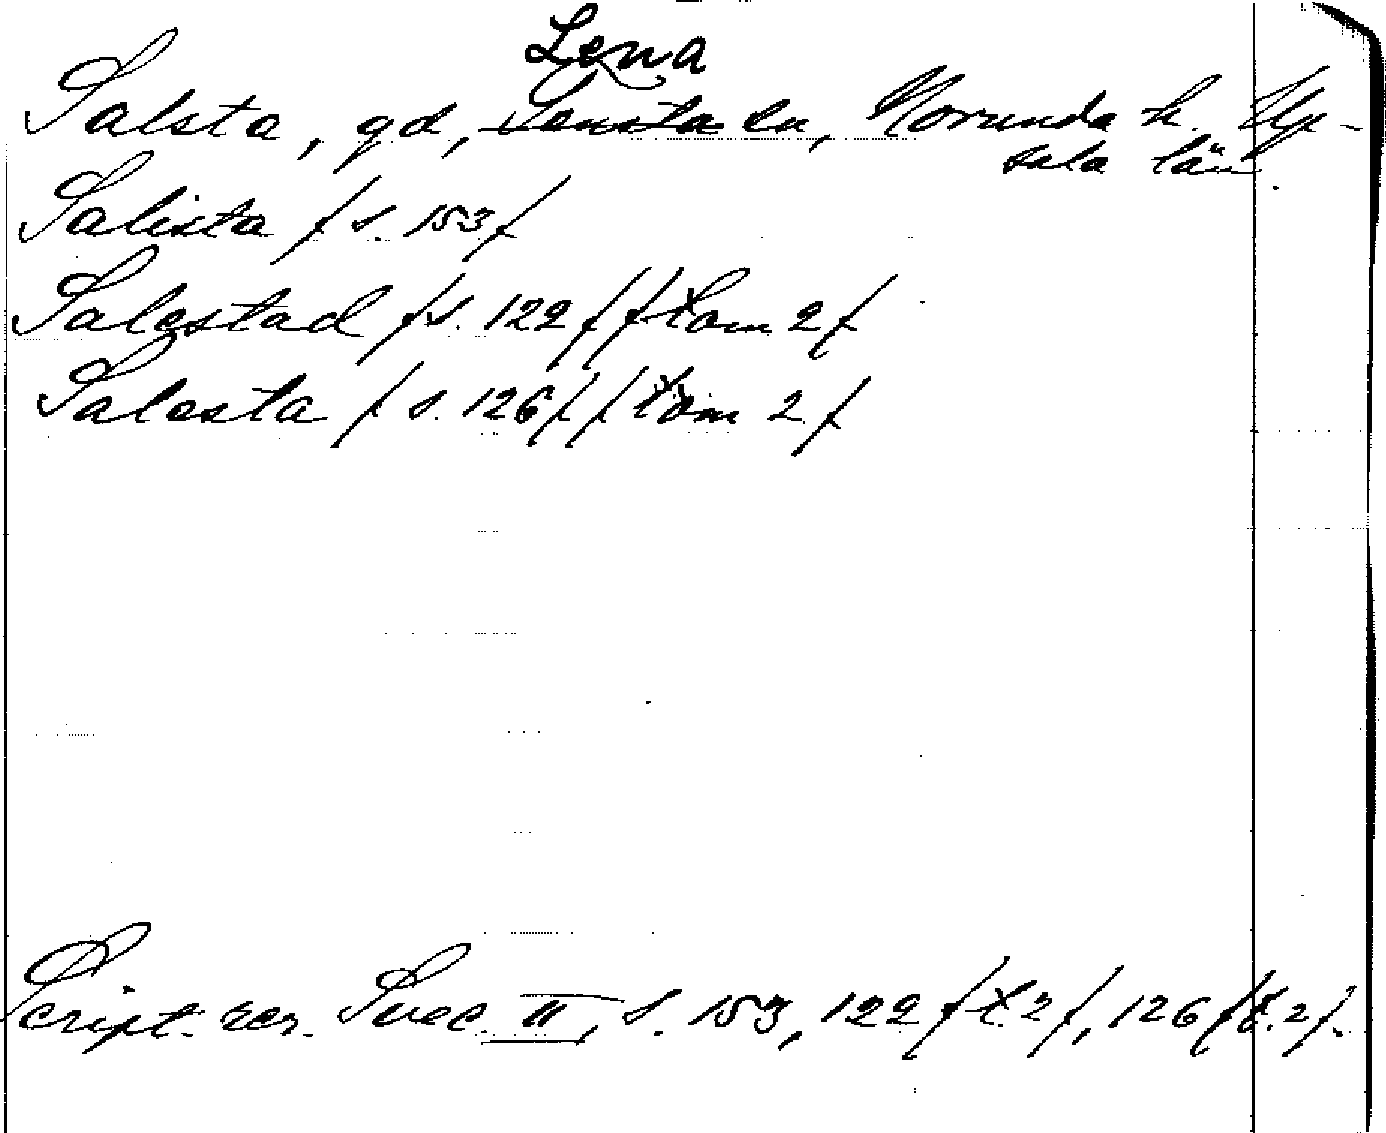 Lena
Salsta, gd, Lensta sn, Norunda h. Up-
sala län.
Salista /s. 153/
Salestad /s. 122/ /tom 2/
Salesta /s. 126/ /tom 2/
Script. rer. Suec. II, s. 153, 122 /t. 2/, 126 /t. 2/.